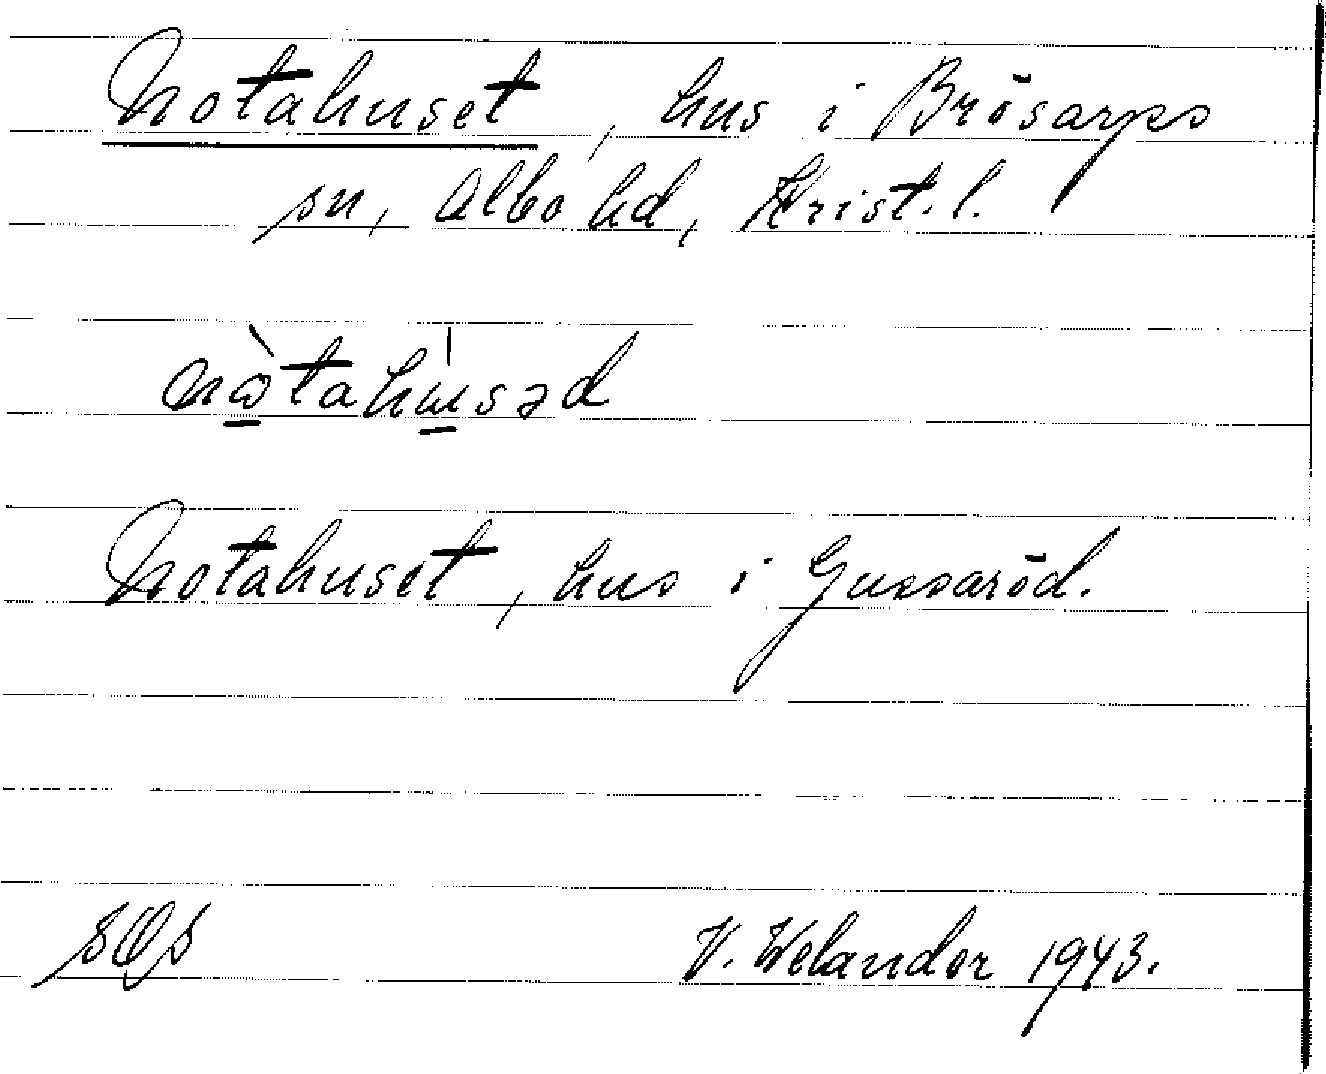 Notahuset, hus i Brösarps
sn, Albo hd, Krist. l.
Notahuset, hus i Gussaröd.
SOS V. Welander 1943.